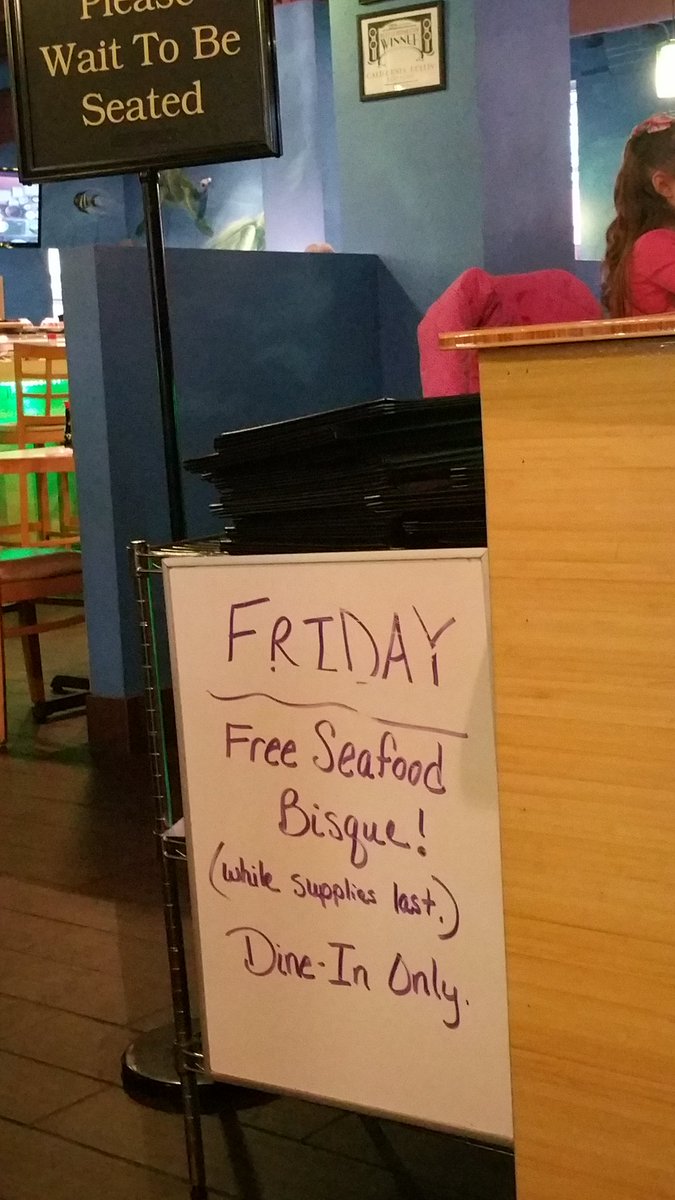 Please
Wait To Be
Seated
WINNER
CALIFORNIA ROLLIN'
FRIDAY
Free Seafood
Bisque!
(while supplies last.)
Dine-In Only.